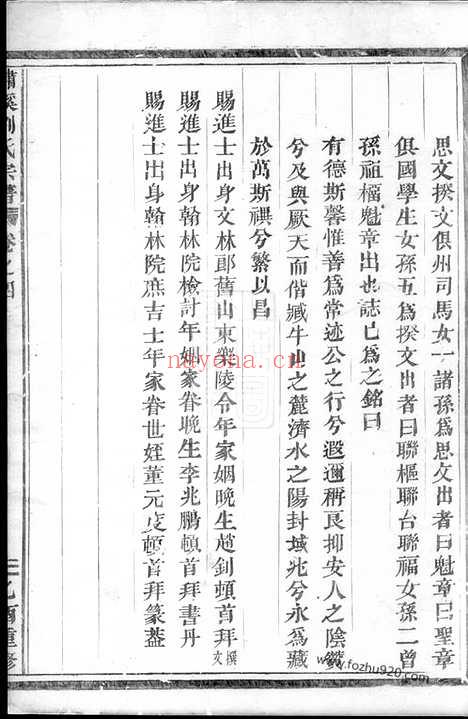 思文揆文俱州司馬女一諸孫爲思文出者曰魁章曰聖章
俱國學生女孫五爲揆文出者曰聯樞聯台聯福女孫二曾
孫祖福魁章出也誌已爲之銘曰
有德斯馨惟善爲常迹公之行兮遐邇稱良抑安人之陰
兮及與厥天而偕臧牛山之麓濟水之陽封域兆兮永爲藏
於萬斯禩兮繁以昌
賜進士出身文林郎舊山東陵令年家姻晚生趙釗頓首拜撰文
賜進士出身翰林院檢討年姻家眷晚生李兆鵬頓首拜書丹
賜進士出身翰林院庶吉士年家眷世姪董元度頓首拜篆葢
劉氏宗譜 卷之四
乙酉重修
nayona.cn
www.fozhu920.com